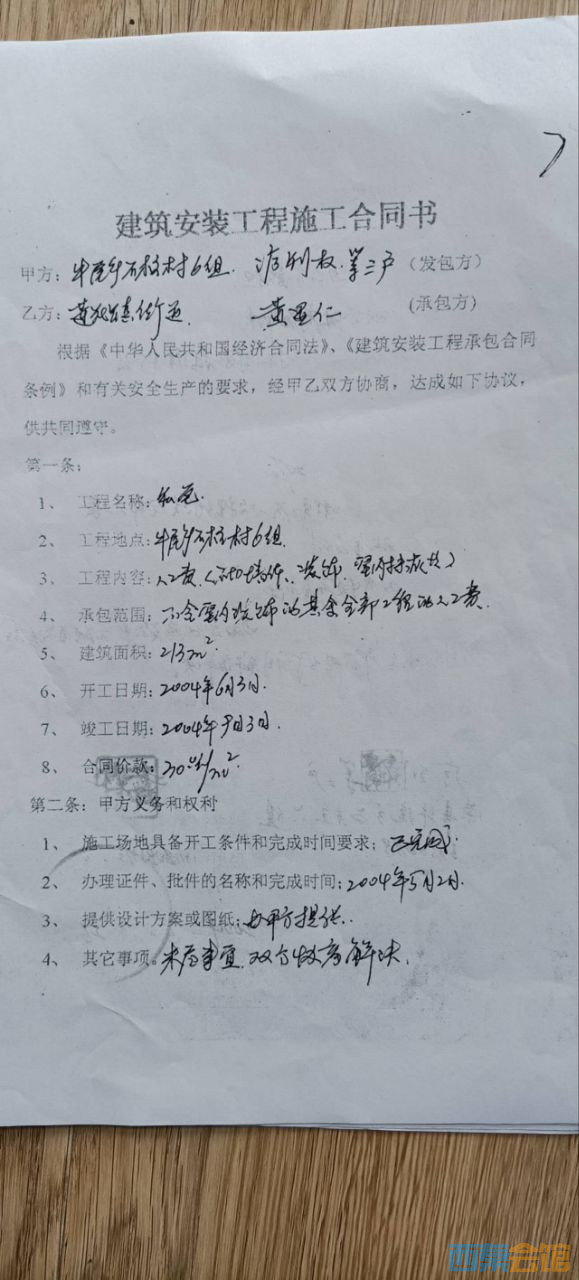 建筑安装工程施工合同书
甲方：牛尾乡石柱村6组. 第三户（发包方）
乙方： 黄显仁 （承包方）
根据《中华人民共和国经济合同法》、《建筑安装工程承包合同
条例》和有关安全生产的要求，经甲乙双方协商，达成如下协议，
供共同遵守。
第一条：
1、 工程名称：私宅.
2、 工程地点：牛尾乡石柱村6组.
3、 工程内容：人工费
4、 承包范围：不含室内装饰的其余全部工程的人工费.
5、 建筑面积：213m².
6、 开工日期：2004年6月3日.
7、 竣工日期：2004年9月3日.
8、 合同价款：/m²
第二条：甲方义务和权利
1、 施工场地具备开工条件和完成时间要求：已完成.
2、 办理证件、批件的名称和完成时间：2004年5月2日.
3、 提供设计方案或图纸：由甲方提供.
4、 其它事项。未尽事宜.双方协商解决.
西祠会馆